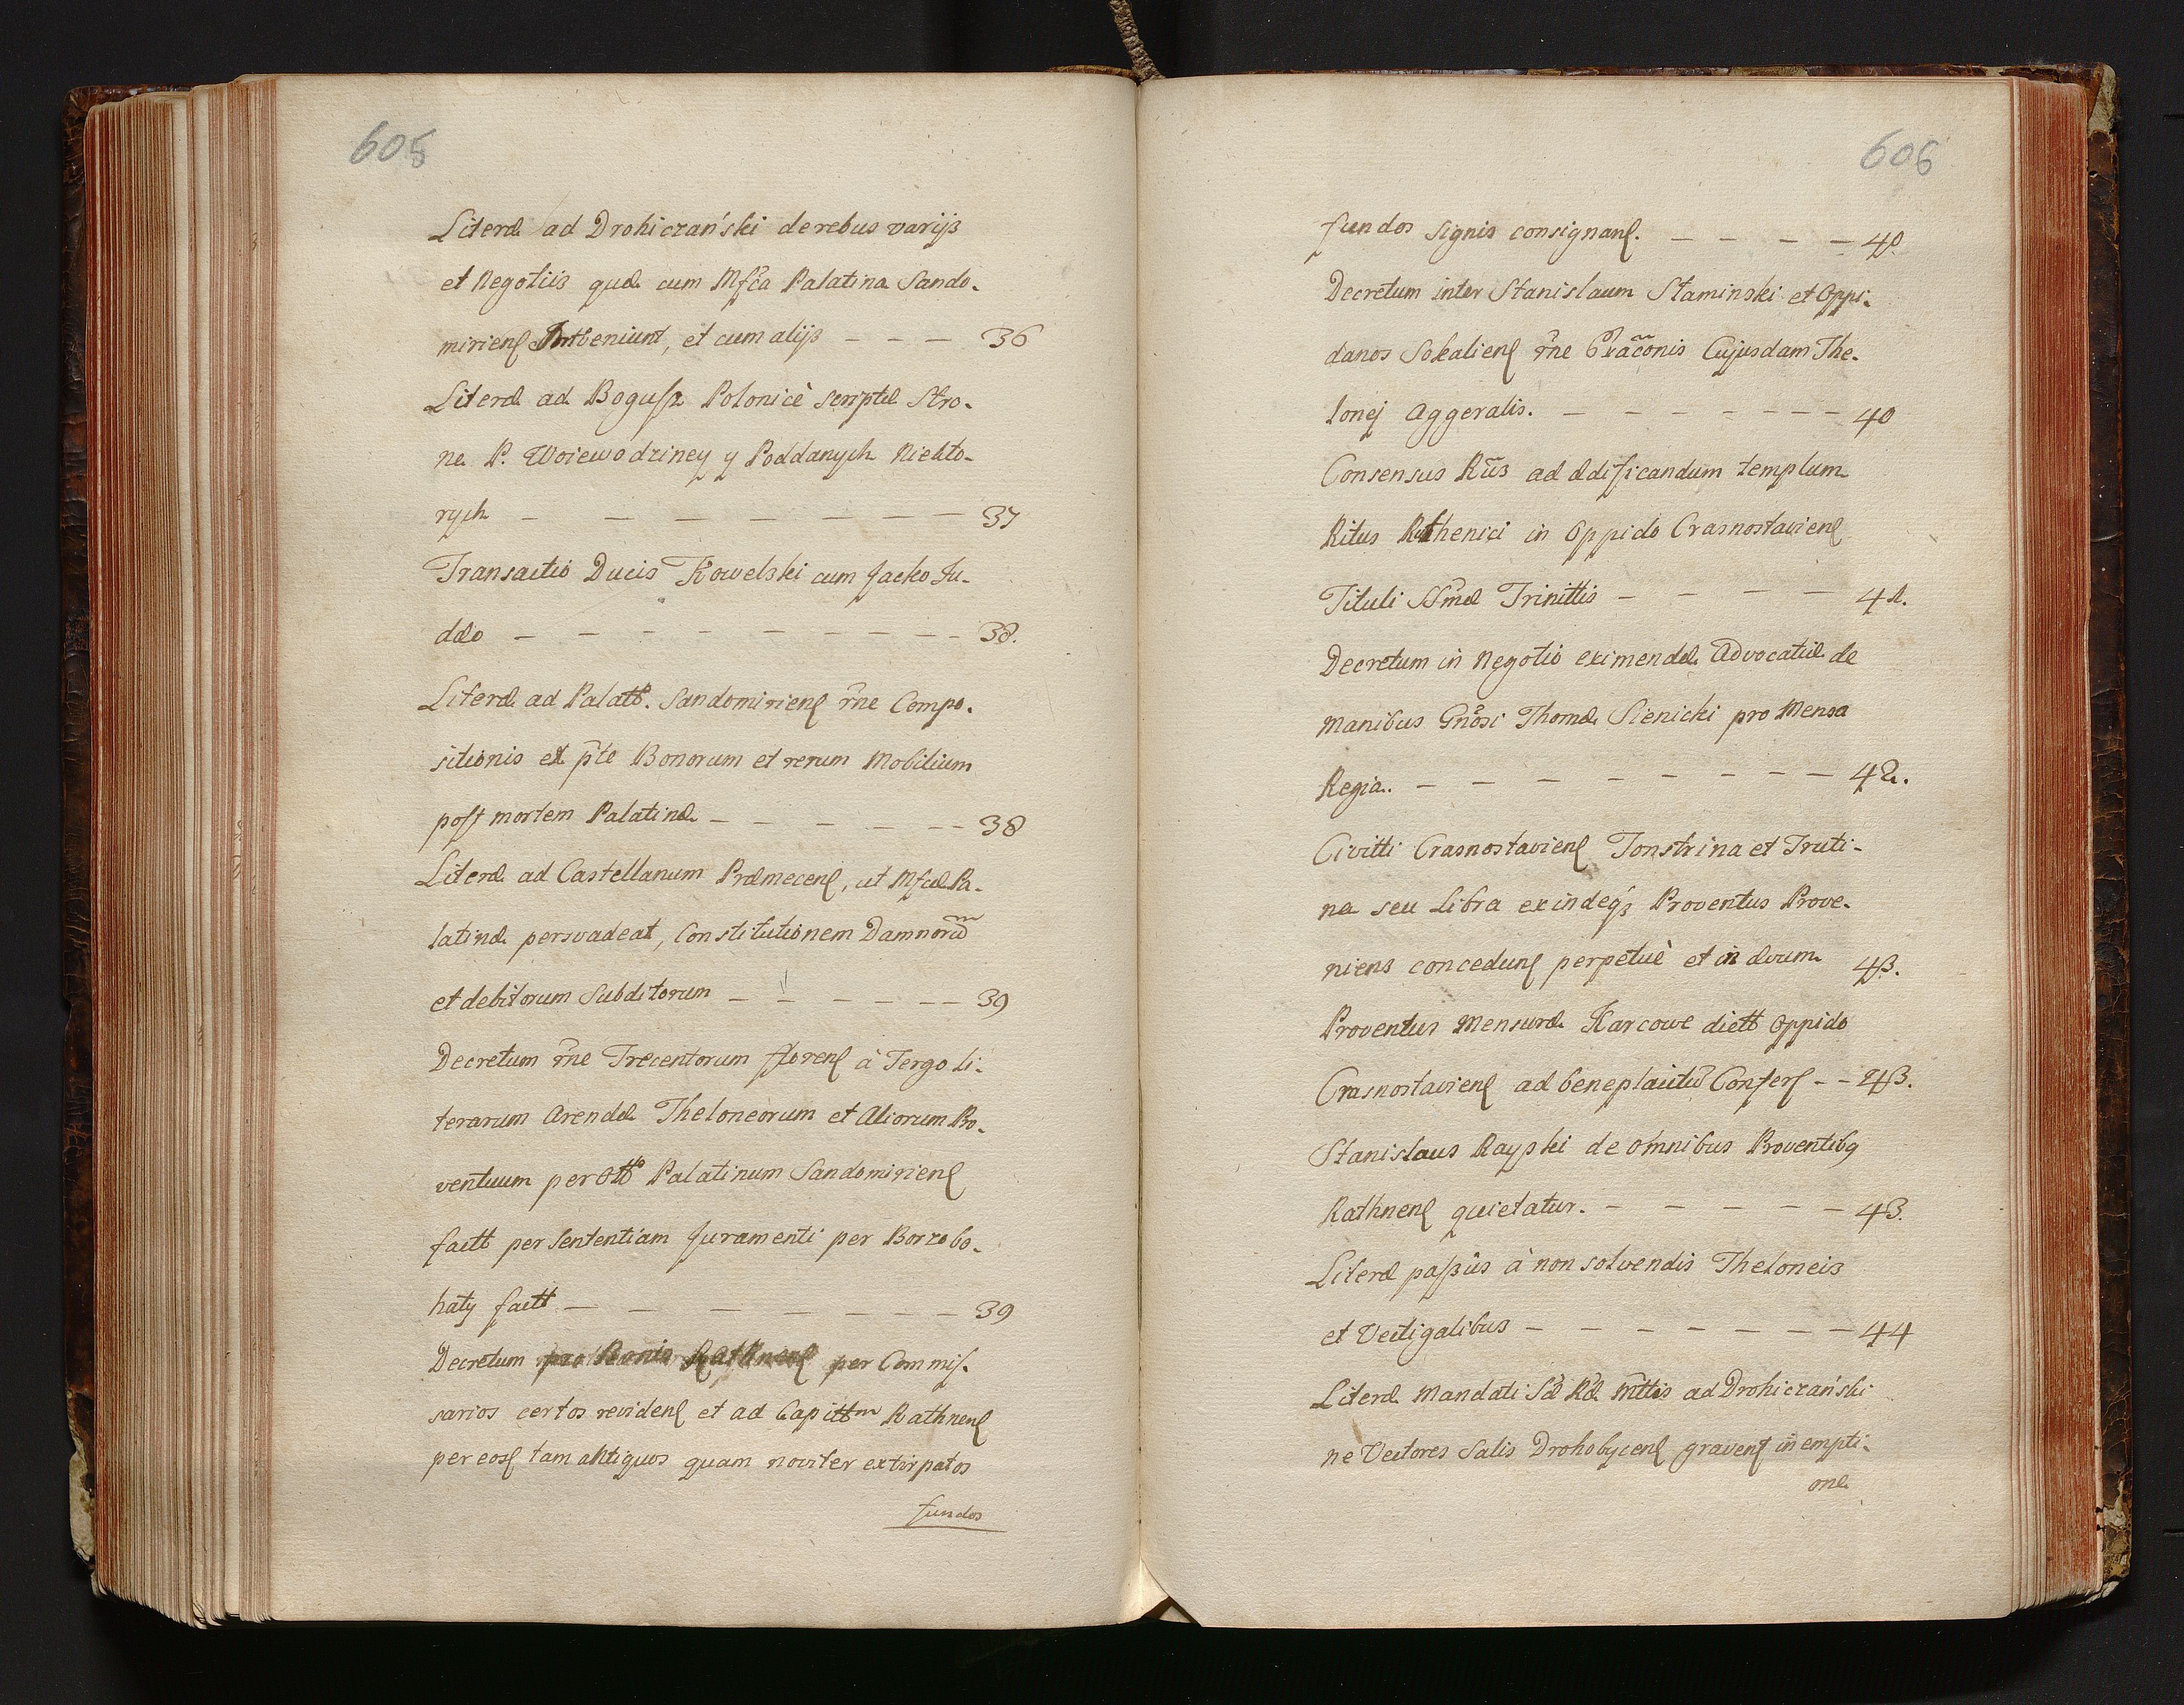 605
Literæ ad Drohiczański de rebus varijs
et Negotiis quæ cum Mfca Palatina Sando-
mirienſ Interveniunt, et cum alijs – – – 36
Literæ ad Boguſz Polonicè scriptæ Stro-
ne P. Woiewodziney y Poddanych Niekto-
rych – – – – – – – 37
Transactio Ducis Kowelski cum Jacko Ju-
dæo – – – – – – – – – 38.
Literæ ad Palatt. Sandomirienſ rne Compo-
sitionis ex pte Bonorum et rerum Mobilium
poſt mortem Palatinæ – – – – – – 38
Literæ ad Castellanum Præmecenſ, ut Mfcæ Pa-
latinæ persvadeat, Constitutionem Damnorum
et debitorum Subditorum – – – – – – 39
Decretum rne Trecentorum florenſ à Tergo Li-
terarum Arendæ Theloneorum et Aliorum Pro-
ventuum per Palatinum Sandomirienſ
factt per Sententiam Juramenti per Borzobo-
haty factt – – – – – – – 39
Decretum pro Bonis Rathnenſ per Commiſ-
sarios certos revidenſ et ad Capittm Rathnenſ
per eosſ tam antiquos quam noviter extirpatos
fundos
606
fundos signis consignanſ. – – – – 40.
Decretum inter Stanislaum Staminski et Oppi-
danos Sokalienſ rne Exacõnis Cujusdam The-
lonej Aggeralis. – – – – – – – 40
Consensus Rũs ad ædificandum templum
Ritus Ruthenici in Oppido Crasnostavienſ
Tituli SSmæ Trinittis – – – – 41.
Decretum in Negotio eximendæ Advocatiæ de
manibus Gnõsi Thomæ Sienicki pro Mensa
Regia. – – – – – – – – 42.
Civitti Crasnostavienſ Tonstrina et Truti-
na seu Libra exindeq3 Proventus Prove-
niens concedunſ perpetuè et in ævum 43.
Proventus Mensuræ Karcowe dictt Oppido
Crasnostavienſ ad beneplacitũ Conferſ – – 43.
Stanislaus Rayski de omnibus Proventibꝰ
Rathnenſ quietatur. – – – – – 43.
Literæ paſsûs à non solvendis Theloneis
et Vectigalibus – – – – – – – 44
Literæ Mandati Sæ Ræ Mttis ad Drohiczański
ne Vectores Salis Drohobycenſ gravenſ in empti-
one